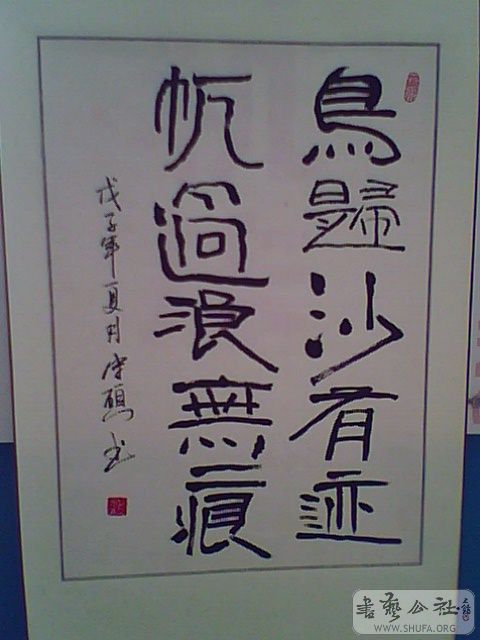 鳥歸沙有迹
帆過浪無痕
戊子年夏月 书
書藝公社
WWW.SHUFA.ORG